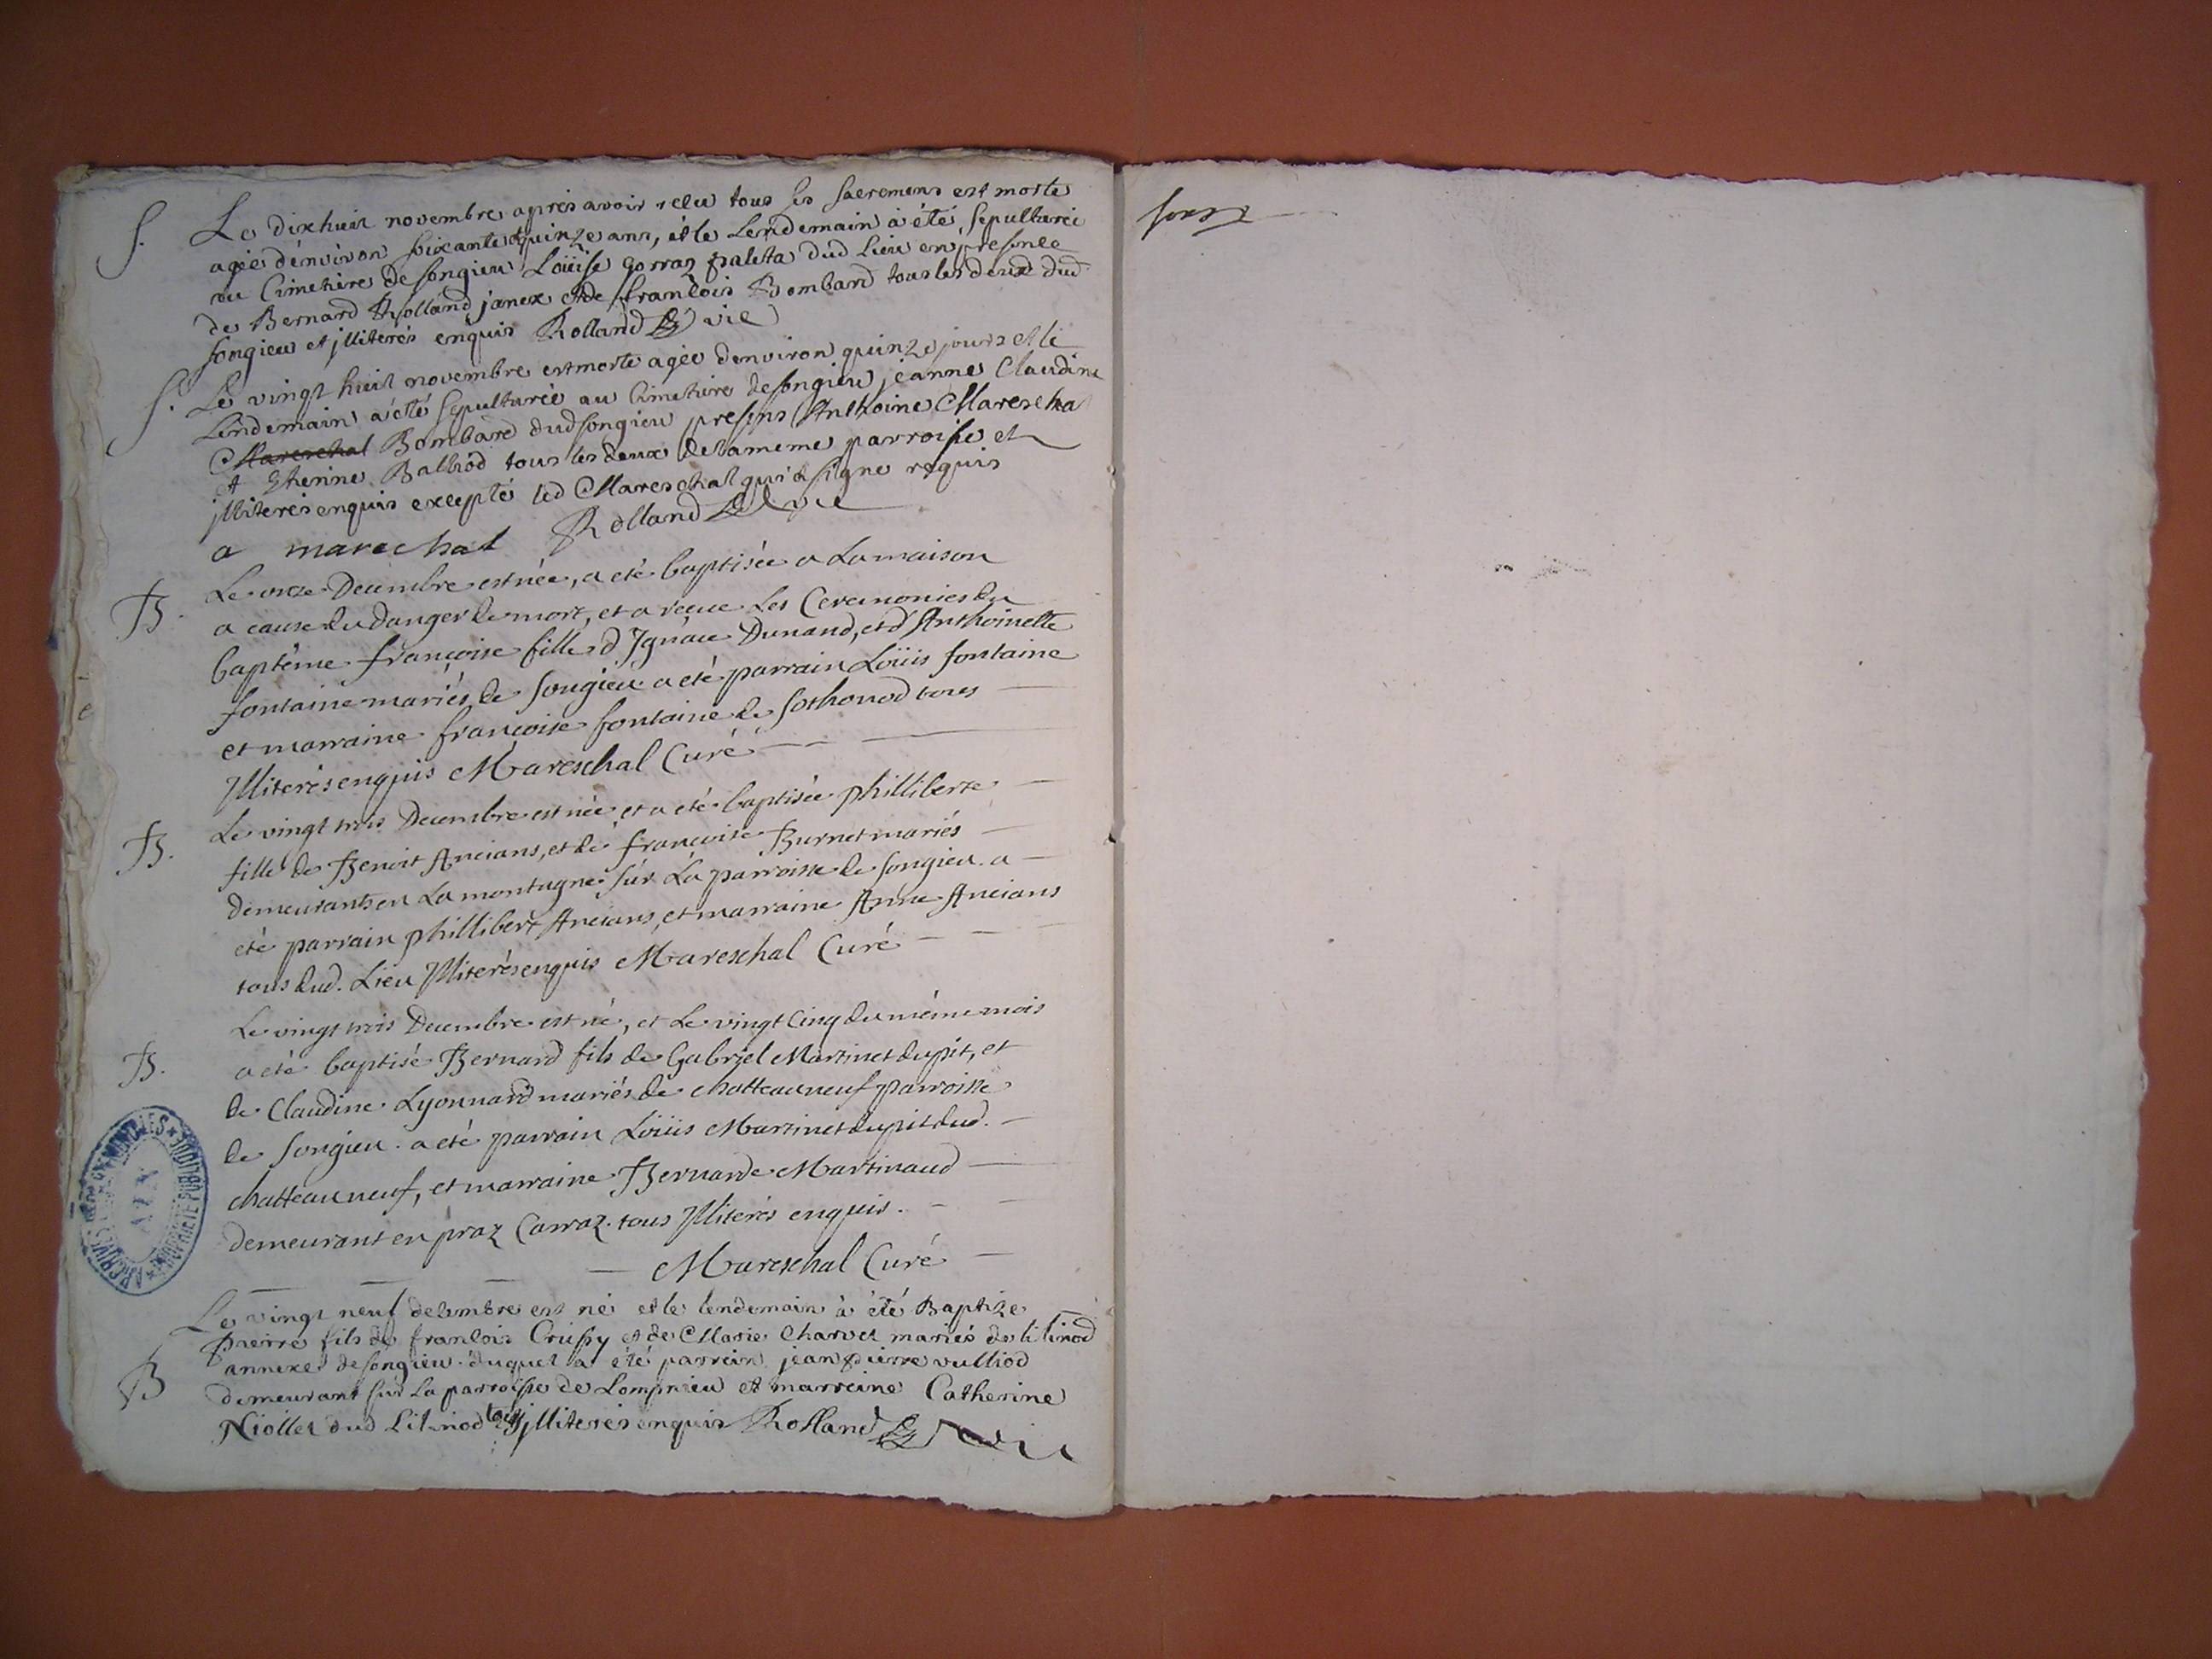 S. Le dixhuit novembre après avoir reçu tous les sacremens est morte
agée d'environ soixante et quinze ans, et le Lendemain à été sepulturée
au Cimetiere de songieu Loüise gorraz paleta dud Lieu en presence
de Bernard Rolland janex et de françois Bombard tous les deux dud
songieu et jlliterés enquis Rolland vic
S. Le vingt huit novembre est morte agée d'environ quinze jours et le
Lendemain a été sepulturée au Cimetiere de songieu jeanne Claudine
Mareschal Bombard dud songieu presens Anthoine Mareschal
et Etienne Balliod tous les deux de la meme parroisse et
jlliterés enquis excepté led Mareschal qui a signe requis
a marechal Rolland vic
B. Le onze Decembre est née, a eté baptisée a La maison
a cause du danger de mort, et a reçue Les Ceremonies du
baptême françoise fille d'Ignace Dunand, et d'Anthoinette
fontaine mariés de songieu a eté parrain Loüis fontaine
et marraine françoise fontaine de sothonod tous
Jlliterés enquis Mareschal Curé
B. Le vingt trois Decembre est née et a eté baptisée philliberte
fille de Benoit Ancians, et de françoise Burnet mariés
demeurants en La montagne sur La parroisse de songieu. a
eté parrain phillibert Ancians, et marraine Anne Ancians
tous dud. Lieu Jlliterés enquis Mareschal Curé
Le vingt trois Decembre est né, et Le vingt Cinq du même mois
B. a eté baptisé Bernard fils de Gabriel Martinet dupit, et
de Claudine Lyonnard mariés de chatteauneuf parroisse
de songieu. a eté parrain Loüis Martinet dupit dud.
chatteauneuf, et marraine Bernarde Martinaud
demeurant en praz Carraz. tous Jlliterés enquis.
Mareschal Curé
Le vingt neuf decembre est né et le lendemain à été Baptize
pierre fils de françois Crussy et de Marie Charvet mariés de lilinod
annexe de songieu. duquel a été parrein jean pierre vulliod
B demeurant sur La parroisse de Lompnieu et marreine Catherine
Niollet dud Lilinod tous jlliterés enquis Rolland vic
ARCHIVES DEPARTEMENTALES * PROPRIETE PUBLIQUE *
AIN